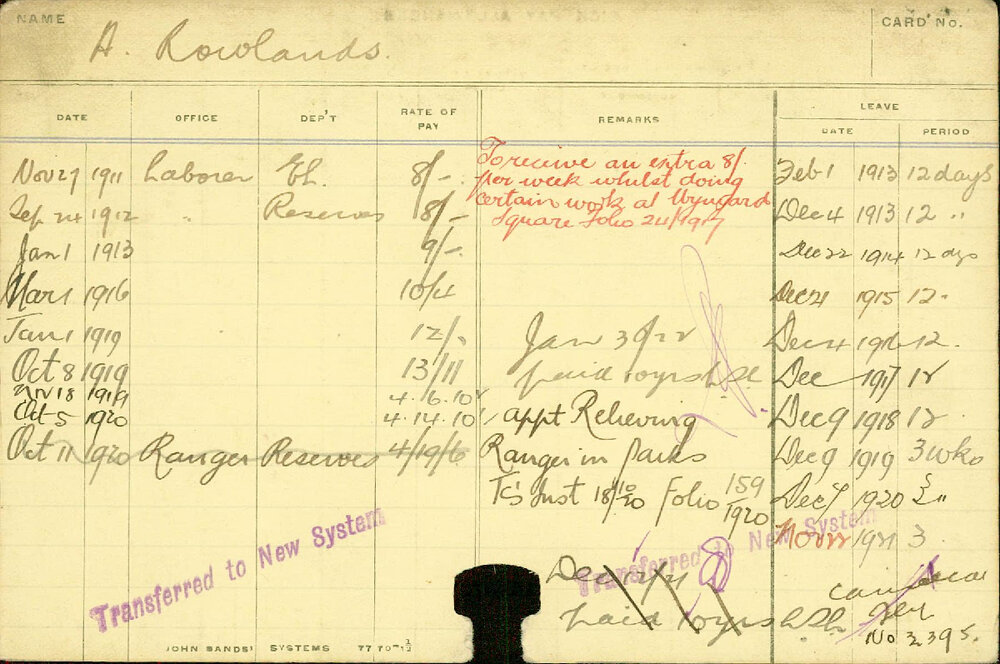 NAME
A. Rowlands.
CARD No.
DATE OFFICE DEP'T RATE OF PAY REMARKS LEAVE
DATE PERIOD
Nov 27 1911 Laborer El. 8/-
Sep 24 1912 " Reserves 8/-
Jan 1 1913 9/-
Mar 1 1916 10/4
Jan 1 1919 12/-
Oct 8 1919 13/11
Nov 18 1919 4.6.10
Oct 5 1920 4.14.10
Oct 11 1920 Ranger Reserves 4/19/6
To receive an extra 8/-
per week whilst doing
certain work at Wynyard
Square Folio 24/1917
Jan 30/22
paid 10yrs L.S.L.
appt Relieving
Ranger in Parks
T's Inst 18/10/20 Folio 159/1920
Dec
paid 10yrs L.S.L.
Feb 1 1913 12 days
Dec 4 1913 12 "
Dec 22 1914 12 dys
Dec 21 1915 12.
Dec 4 1916 12.
Dec 1917 12
Dec 9 1918 12
Dec 9 1919 3 wks
Dec 7 1920 3 "
Nov 22 1921 3
No 2395.
Transferred to New System
Transferred to New System
JOHN SANDS' SYSTEMS 7770-